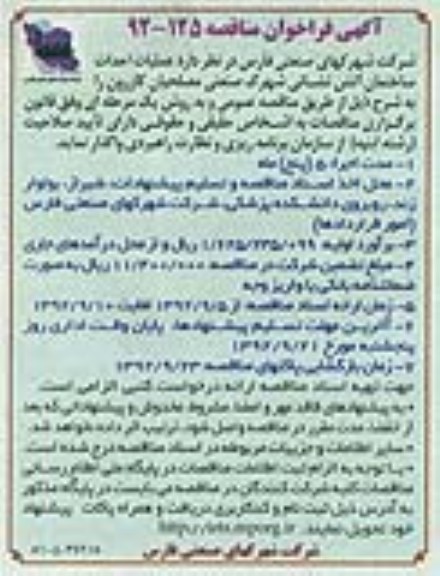 آگهی فراخوان مناقصه ۱۲۵-۹۲
شرکت شهرکهای صنعتی فارس در نظر دارد عملیات احداث
ساختمان آتش نشانی شهرک صنعتی مصلحیان کازرون را
به شرح ذیل از طریق مناقصه عمومی و به روش یک مرحله ای وفق قانون
برگزاری مناقصات به اشخاص حقیقی و حقوقی دارای تأیید صلاحیت
(رشته ابنیه) از سازمان برنامه ریزی و نظارت راهبردی واگذار نماید.
۱- مدت اجرا: ۵ (پنج) ماه
۲- محل اخذ اسناد مناقصه و تسلیم پیشنهادات: شیراز، بولوار
زند، روبروی دانشکده پزشکی، شرکت شهرکهای صنعتی فارس
(امور قراردادها)
۳- برآورد اولیه: ریال و از محل درآمدهای جاری
۴- مبلغ تضمین شرکت در مناقصه: ریال به صورت
ضمانتنامه بانکی یا واریز وجه
۵- زمان ارائه اسناد مناقصه: از ۱۳۹۲/۹/۵ لغایت ۱۳۹۲/۹/۱۰
۶- آخرین مهلت تسلیم پیشنهادها: پایان وقت اداری روز
پنجشنبه مورخ ۱۳۹۲/۹/۲۱
۷- زمان بازگشایی پاکتهای مناقصه: ۱۳۹۲/۹/۲۳
جهت تهیه اسناد مناقصه ارائه درخواست کتبی الزامی است.
* به پیشنهادهای فاقد مهر و امضا، مشروط، مخدوش و پیشنهاداتی که بعد
از انقضا مدت مقرر در مناقصه واصل شود، ترتیب اثر داده نخواهد شد.
* سایر اطلاعات و جزییات مربوطه در اسناد مناقصه درج شده است.
* با توجه به الزام ثبت اطلاعات مناقصات در پایگاه ملی اطلاع رسانی
مناقصات کلیه شرکت کنندگان در مناقصه می بایست در پایگاه مذکور
به آدرس ذیل ثبت نام و کد کاربری دریافت و همراه پاکات پیشنهاد
خود تحویل نمایند. http://iets.mporg.ir
شرکت شهرکهای صنعتی فارس